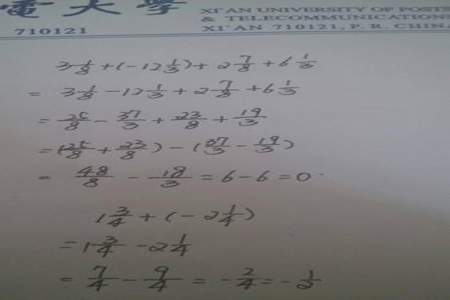 電大學
XI'AN UNIVERSITY OF POSTS
& TELECOMMUNICATIONS
710121
XI'AN 710121, P. R. CHINA
3 1/8 + (-12 1/3) + 2 7/8 + 6 1/3
= 3 1/8 - 12 1/3 + 2 7/8 + 6 1/3
= 25/8 - 37/3 + 23/8 + 19/3
= (25/8 + 23/8) - (37/3 - 19/3)
= 48/8 - 18/3 = 6 - 6 = 0
1 3/4 + (-2 1/4)
= 1 3/4 - 2 1/4
= 7/4 - 9/4 = -2/4 = -1/2